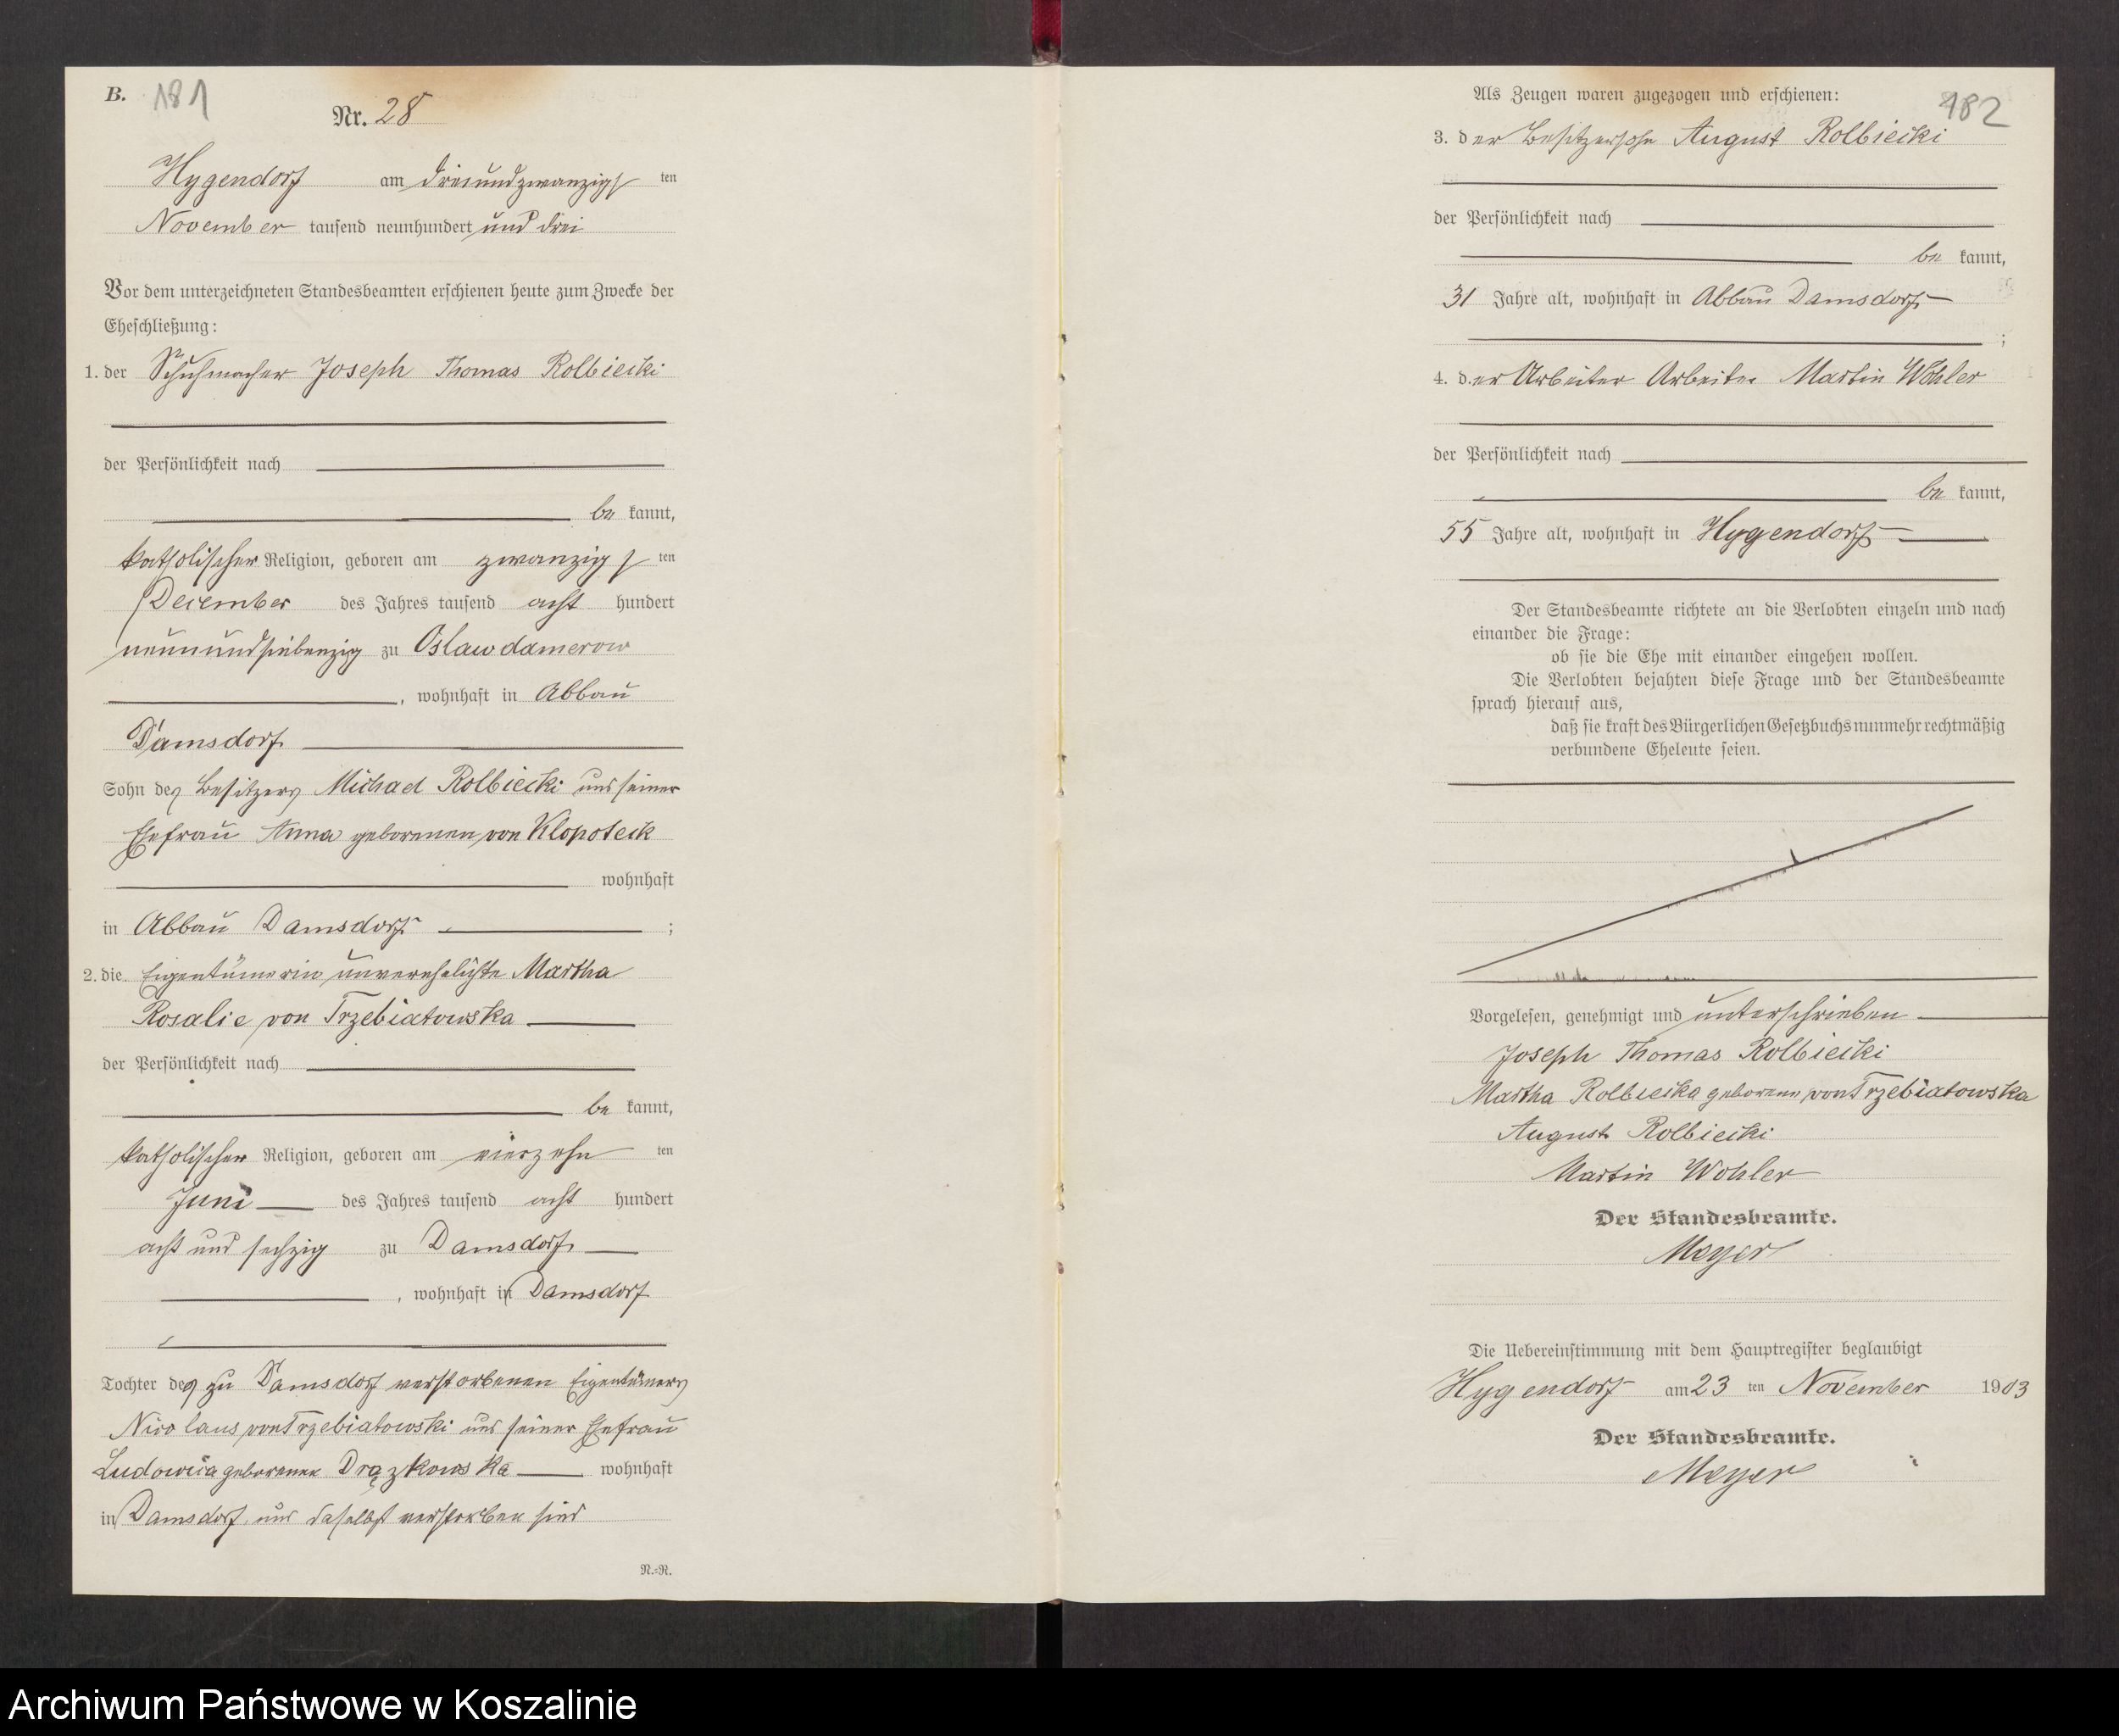 B. 181
Nr. 28
Hygendorf am dreiundzwanzigs ten
November tausend neunhundert und drei
Vor dem unterzeichneten Standesbeamten erschienen heute zum Zwecke der
Eheschließung:
1. der Schuhmacher Joseph Thomas Rolbiecki
der Persönlichkeit nach
be kannt,
katholischer Religion, geboren am zwanzigs ten
December des Jahres tausend acht hundert
neunundsiebenzig zu Oslawdamerow
, wohnhaft in Abbau
Damsdorf
Sohn des Besitzers Michael Rolbiecki und seiner
Ehefrau Anna geborenen von Klopoteck
wohnhaft
in Abbau Damsdorf ;
2. die Eigentümerin unverehelichte Martha
Rosalie von Trzebiatowska
der Persönlichkeit nach
be kannt,
katholischer Religion, geboren am vierzehn ten
Juni des Jahres tausend acht hundert
acht und sechzig zu Damsdorf
, wohnhaft in Damsdorf
Tochter des zu Damsdorf verstorbenen Eigentümers
Nicolaus von Trzebiatowski und seiner Ehefrau
Ludowica geborenen Drązkowska wohnhaft
in Damsdorf und daselbst verstorben sind
N.-R.
182
Als Zeugen waren zugezogen und erschienen:
3. der Besitzersohn August Rolbiecki
der Persönlichkeit nach
be kannt,
31 Jahre alt, wohnhaft in Abbau Damsdorf
;
4. der Arbeiter Arbeiter Martin Wohler
der Persönlichkeit nach
be kannt,
55 Jahre alt, wohnhaft in Hygendorf
Der Standesbeamte richtete an die Verlobten einzeln und nach
einander die Frage:
ob sie die Ehe mit einander eingehen wollen.
Die Verlobten bejahten diese Frage und der Standesbeamte
sprach hierauf aus,
daß sie kraft des Bürgerlichen Gesetzbuchs nunmehr rechtmäßig
verbundene Eheleute seien.
Vorgelesen, genehmigt und unterschrieben
Joseph Thomas Rolbiecki
Martha Rolbiecka geborene von Trzebiatowska
August Rolbiecki
Martin Wohler
Der Standesbeamte.
Meyer
Die Uebereinstimmung mit dem Hauptregister beglaubigt
Hygendorf am 23 ten November 1903
Der Standesbeamte.
Meyer
Archiwum Państwowe w Koszalinie